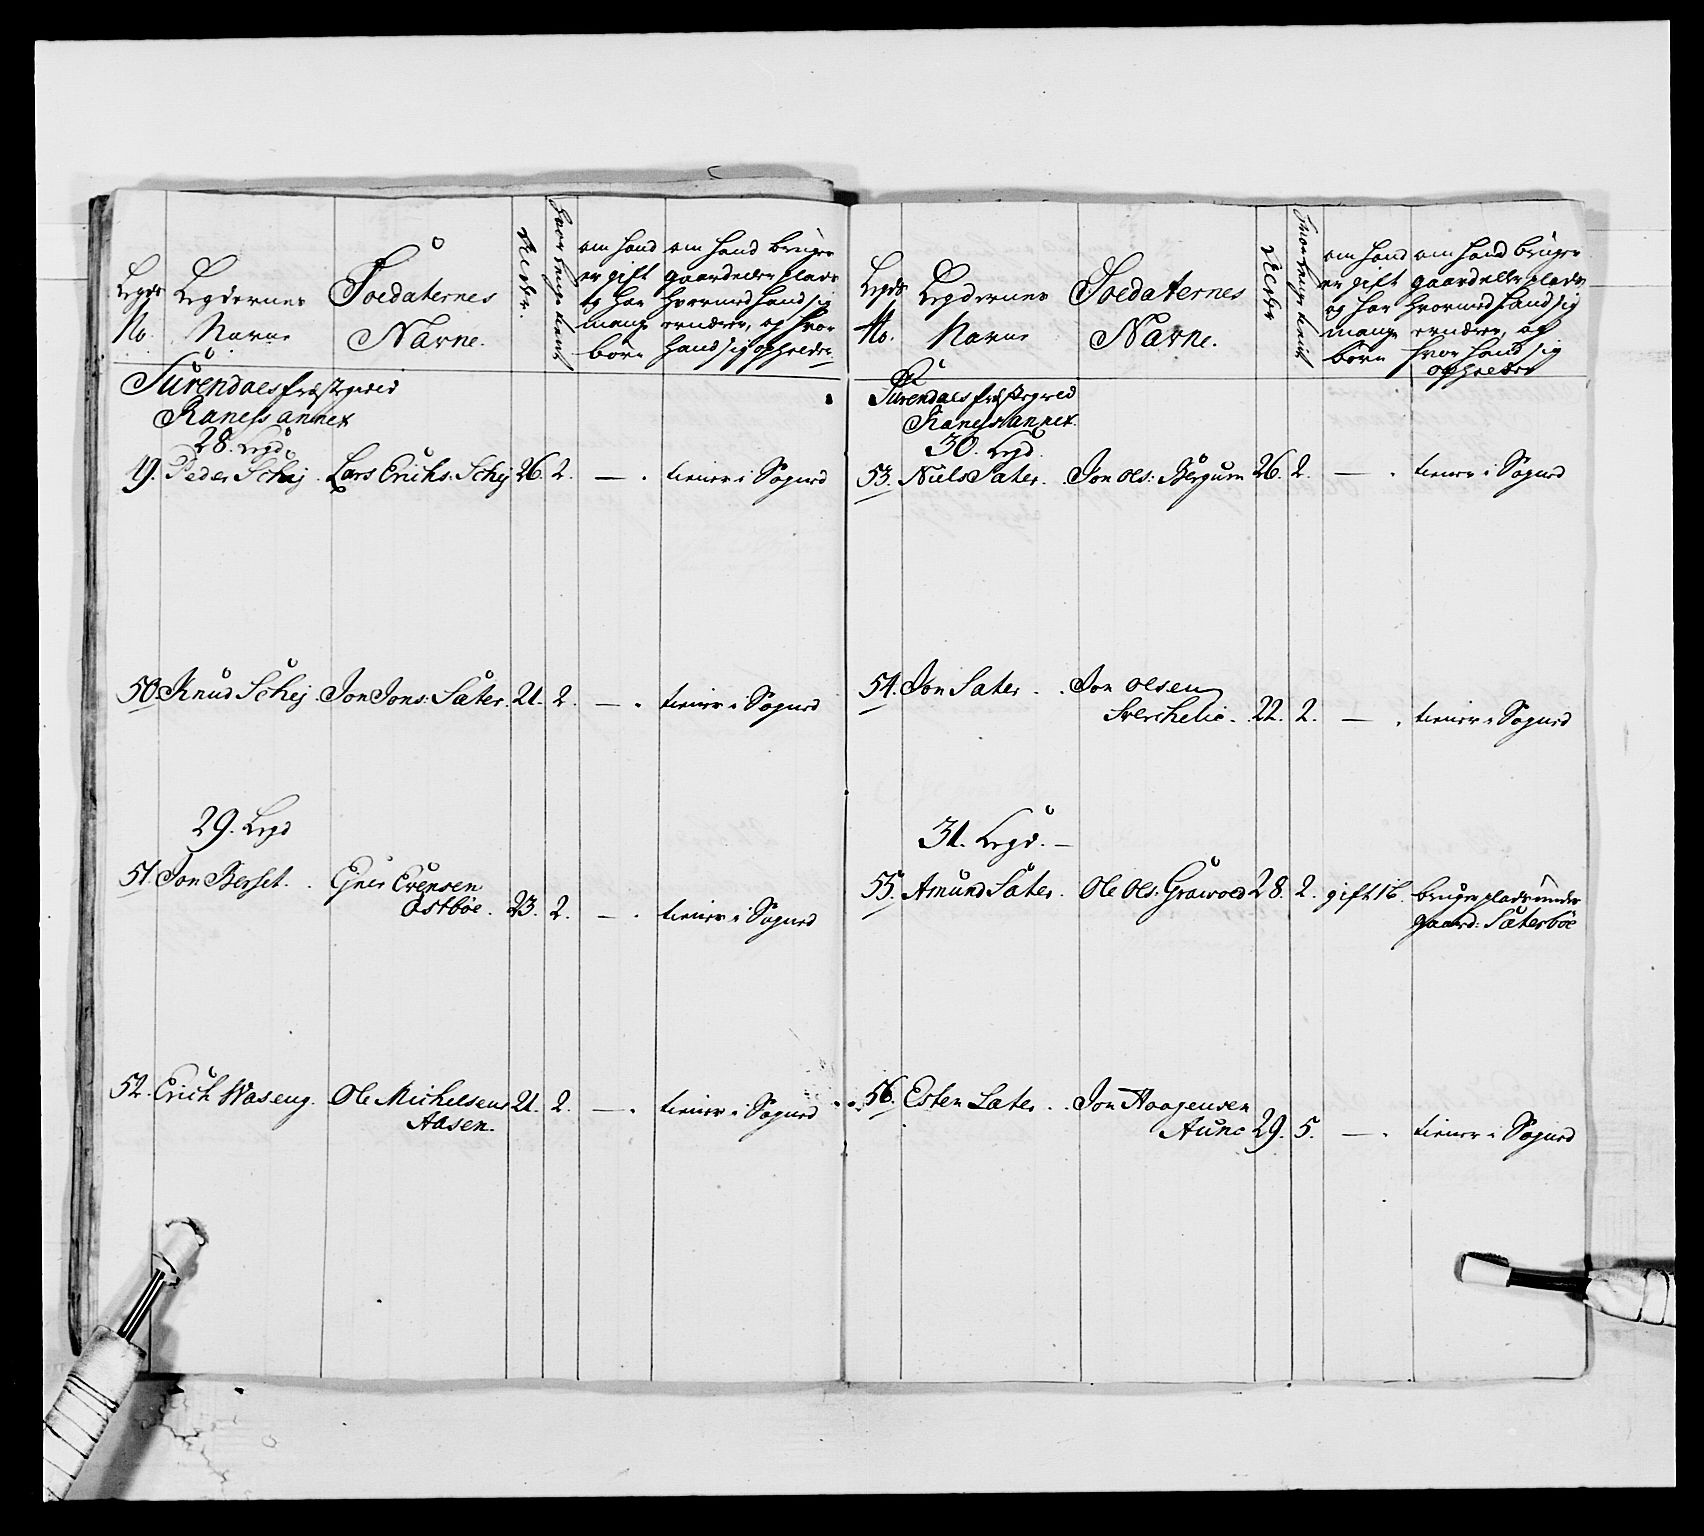 Legds No.
Legdernes Navne
Soldaternes Navne.
Alder.
hvor lenge tient
om hand er gift og har mange börn
om hand bruger gaard eller plads hvormed hand sig ernærer, og hvor hand sig opholder
Surendals præstegield
Ranes annex
28. Legd
49. Peder Schej . Lars Erichs: Schej 26. 2. — . tiener i Sognet
50. Knud Schej . Jon Jons: Sæter. 21. 2. — . tiener i Sognet
29. Legd
51. Jon Berset . Ejner Evensen
Östböe . 23. 2. — . tiener i Sognet
52. Erich Waseng . Ole Michelsens 21. 2. — . tiener i Sognet
Aasen.
Legds No.
Legdernes Navne
Soldaternes Navne.
Alder
hvor lenge tient
om hand er gift og har mange börn
om hand bruger gaard eller plads hvormed hand sig ernærer, og hvor hand sig opholder
Surendals præstegield
Ranes annex.
30. Legd.
53. Niels Sæter . Jon Ols: Bergum 26. 2. — . tiener i Sognet
54. Jon Sæter . . Jon Olsen
Sverchelie . 22. 2. — . tiener i Sognet
31. Legd. —
55. Amund Sæter . Ole Ols: Graavold 28. 2. gift 1 b. bruger plads under
gaard: Sæterböe
56. Esten Sæter . . Jon Haagensen
Aune 29. 5. — . tiener i Sognet